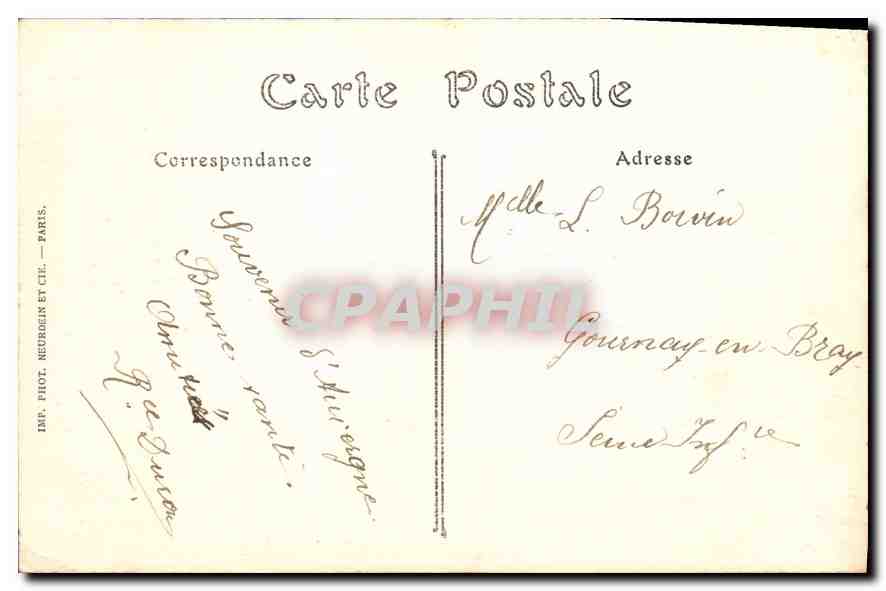 Carte Postale
Correspondance
Adresse
Souvenir d'Auvergne
Bonne santé.
Amitiés
Melle L. Boivin
Gournay-en-Bray
Seine Infre
IMP. PHOT. NEURDEIN ET CIE. — PARIS.
CPAPHIL